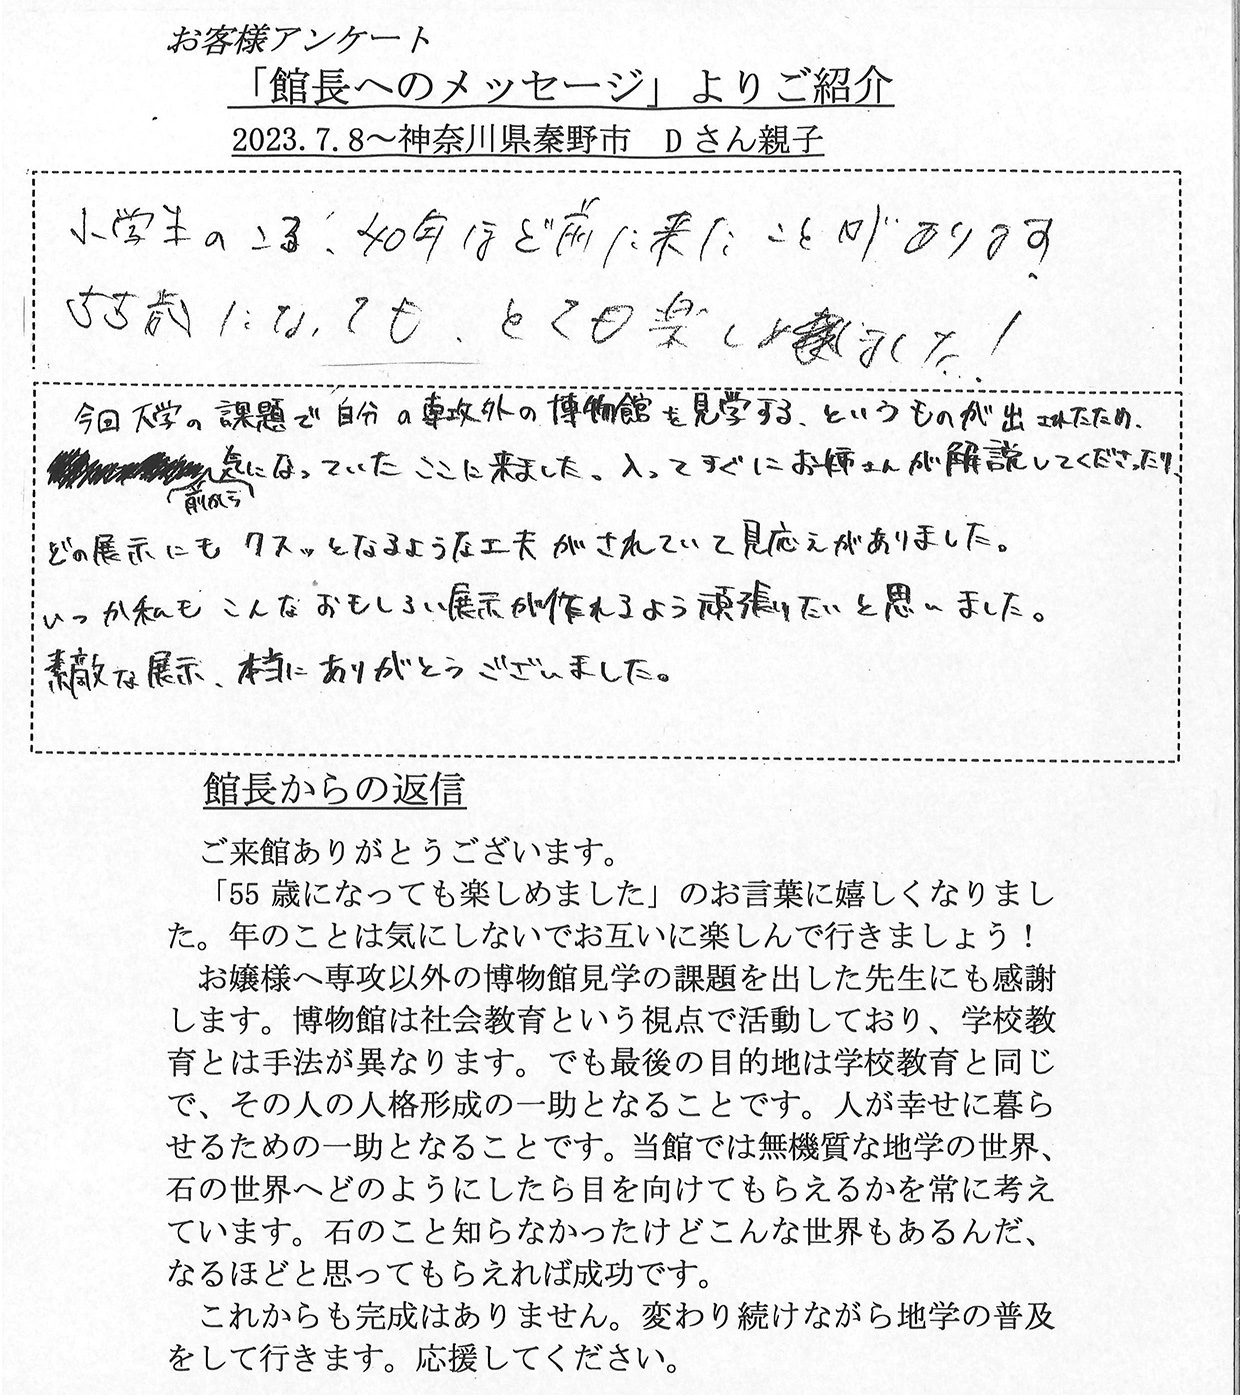 お客様アンケート
「館長へのメッセージ」よりご紹介
2023.7.8～神奈川県秦野市　Dさん親子
小学生のころ、40年ほど前に来たことがあります。
55歳になっても、とても楽しめました!
今回大学の課題で自分の専攻外の博物館を見学する、というものが出されたため、
前から気になっていたここに来ました。入ってすぐにお姉さんが解説してくださったり、
どの展示にもクスッとなるような工夫がされていて見応えがありました。
いつか私もこんなおもしろい展示が作れるよう頑張りたいと思いました。
素敵な展示、本当にありがとうございました。
館長からの返信
ご来館ありがとうございます。
「55歳になっても楽しめました」のお言葉に嬉しくなりまし
た。年のことは気にしないでお互いに楽しんで行きましょう！
お嬢様へ専攻以外の博物館見学の課題を出した先生にも感謝
します。博物館は社会教育という視点で活動しており、学校教
育とは手法が異なります。でも最後の目的地は学校教育と同じ
で、その人の人格形成の一助となることです。人が幸せに暮ら
せるための一助となることです。当館では無機質な地学の世界、
石の世界へどのようにしたら目を向けてもらえるかを常に考え
ています。石のこと知らなかったけどこんな世界もあるんだ、
なるほどと思ってもらえれば成功です。
これからも完成はありません。変わり続けながら地学の普及
をして行きます。応援してください。